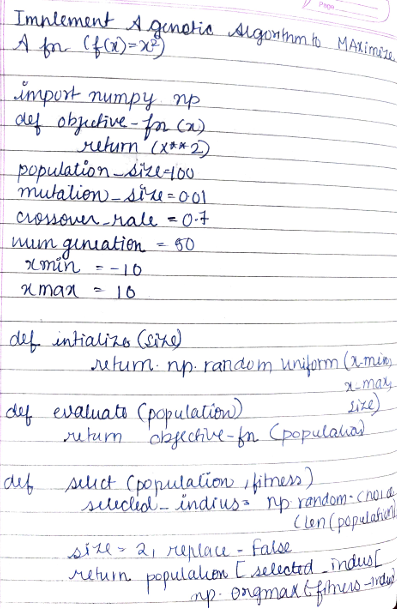 Implement A genetic Algorithm to MAximize
A fn (f(x)=x²)
import numpy np
def objective-fn (x)
return (x**2)
population_size=100
mutation_size=001
crossover_rate = 0.7
num geneation = 50
xmin = -10
xmax = 10
def intialize (size)
return. np. random uniform (x-min,
x-max,
size)
def evaluate (population)
return objective-fn (population)
def select (population, fitness)
selected_indius= np random. choice
(len (population)
size = 2, replace - False
return population [selected_indus[
np. orgmax (fitness_indus